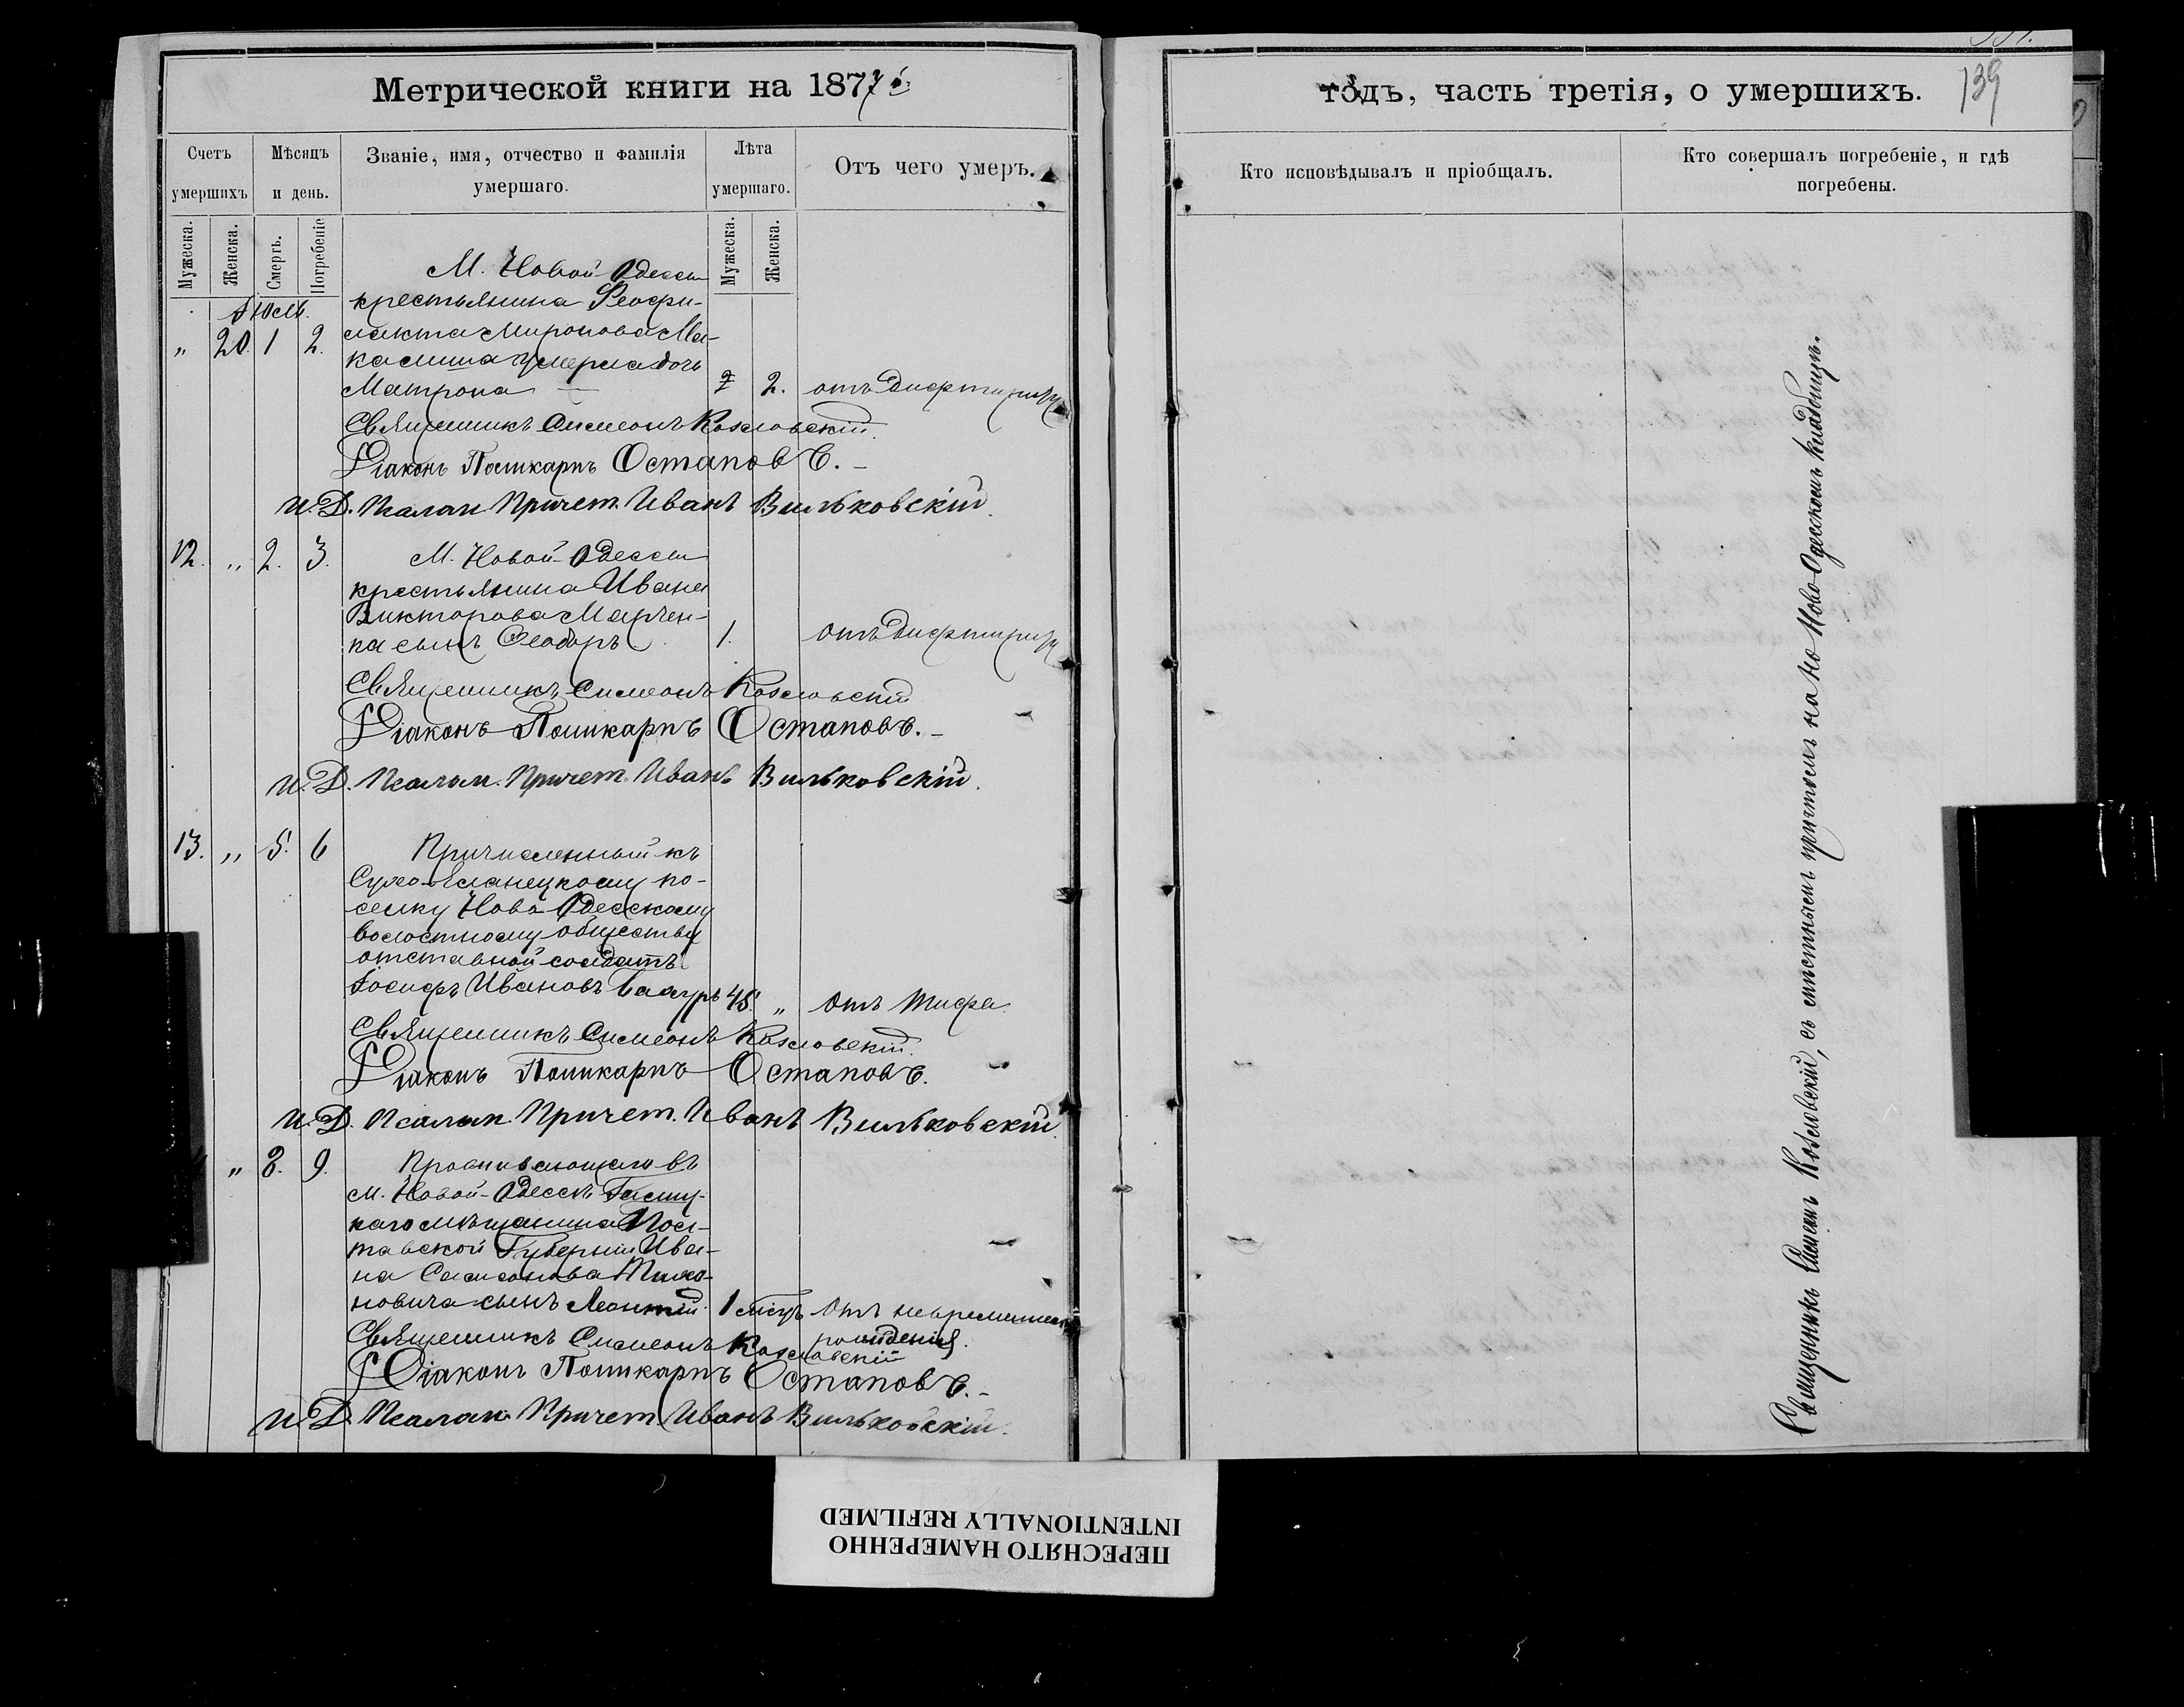 Метрической книги на 1877й
годъ, часть третія, о умершихъ.
139
Счетъ умершихъ
Мѣсяцъ и день.
Званіе, имя, отчество и фамилія умершаго.
Лѣта умершаго.
Отъ чего умеръ.
Кто исповѣдывалъ и пріобщалъ.
Кто совершалъ погребеніе, и гдѣ погребены.
Мужеска.
Женска.
Смерть.
Погребеніе
Мужеска.
Женска.
М. Новой Одессы
крестьянина Феофи-
" 20. 1 2. лакта Миронова Ма-
умерла дочь
Матрона 2. отъ дифтириту
Священникъ Симеонъ Козловскій
Діаконъ Поликарпъ Остаповъ. –
И. Д. Псалом. Причет. Иванъ Вильковскій.
12. " 2. 3. М. Новой-Одессы
крестьянина Ивана
Викторова Марчен-
ка сынъ Ѳеодоръ 1. отъ дифтириту
Священникъ Симеонъ Козловскій
Діаконъ Поликарпъ Остаповъ. –
И. Д. Псалом. Причет. Иванъ Вильковскій.
13. " 5. 6 Причисленный къ
Сухо-Еланецкому по-
селку Ново-Одесскому
волостному обществу
отставной солдатъ
Іосифъ Ивановъ 45. " отъ тифа.
Священникъ Симеонъ Козловскій.
Діаконъ Поликарпъ Остаповъ.
И. Д. Псалом. Причет. Иванъ Вильковскій.
" 8. 9. Проживающаго въ
м. Новой-Одессѣ
мѣщанина Пол-
тавской Губерніи Ива-
на Самсонова Тихо-
новича сынъ Леонтій. 1 мѣсц. отъ
рожденія.
Священникъ Симеонъ Козловскій
Діаконъ Поликарпъ Остаповъ. –
И. Д. Псалом. Причет. Иванъ Вильковскій.
Священникъ Симеонъ Козловскій, съ мѣстнымъ причтомъ на Ново-Одесскомъ кладбищѣ.
ПЕРЕСНЯТО НАМЕРЕННО
INTENTIONALLY REFILMED